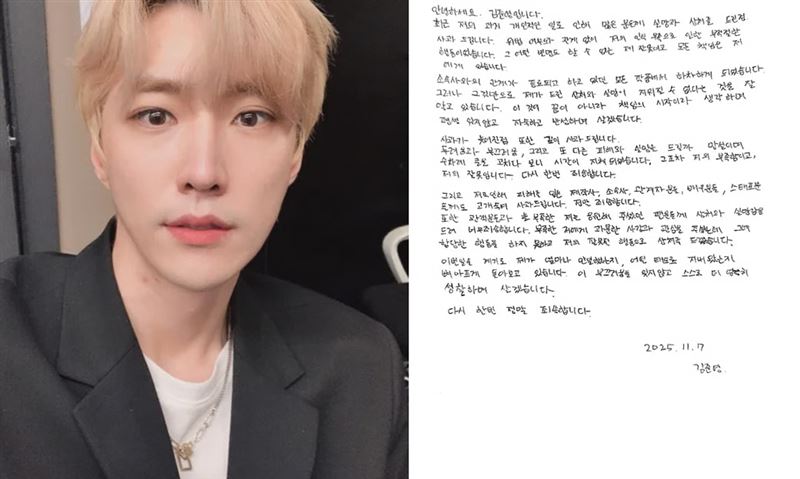 안녕하세요. 김준영입니다.
최근 저의 과거 개인적인 일로 인해 많은 분들께 실망과 상처를 드린점
사과 드립니다. 위법 여부와 관계 없이 저의 인식 부족으로 인한 부적절한
행동이었습니다. 그 어떤 변명도 할 수 없는 제 잘못이고 모든 책임은 저
에게 있습니다.
소속사와의 관계가 종료되고 하고 있던 모든 작품에서 하차하게 되었습니다.
그러나 그것만으로 제가 드린 상처와 실망이 지워질 수 없다는 것을 잘
알고 있습니다. 이 것이 끝이 아니라 책임의 시작이라 생각하며
평생 잊지않고 자숙하고 반성하며 살겠습니다.
사과가 늦어진점 또한 깊이 사과드립니다.
두려움과 부끄러움, 그리고 또 다른 피해와 실망을 드릴까 망설이며
수차례 글을 고치다 보니 시간이 지체 되었습니다. 그조차 저의 부족함이고,
저의 잘못입니다. 다시 한번 죄송합니다.
그리고 저로인해 피해를 입은 제작사, 소속사, 관계자분들, 배우분들, 스태프분
들께도 고개숙여 사과드립니다. 정말 죄송합니다.
또한 관객분들과 늘 부족한 저를 응원해 주셨던 팬분들께 상처와 실망감을
드려 너무 죄송합니다. 부족한 저에게 과분한 사랑과 관심을 주셨는데 그에
합당한 행동을 하지 못하고 저의 잘못된 행동으로 상처를 드렸습니다.
이번일을 계기로 제가 얼마나 안일했는지, 어떤 태도로 지내왔는지
뼈아프게 돌아보고 있습니다. 이 부끄러움을 잊지않고 스스로 더
성찰하며 살겠습니다.
다시 한번 정말 죄송합니다.
2025. 11. 7
김준영.